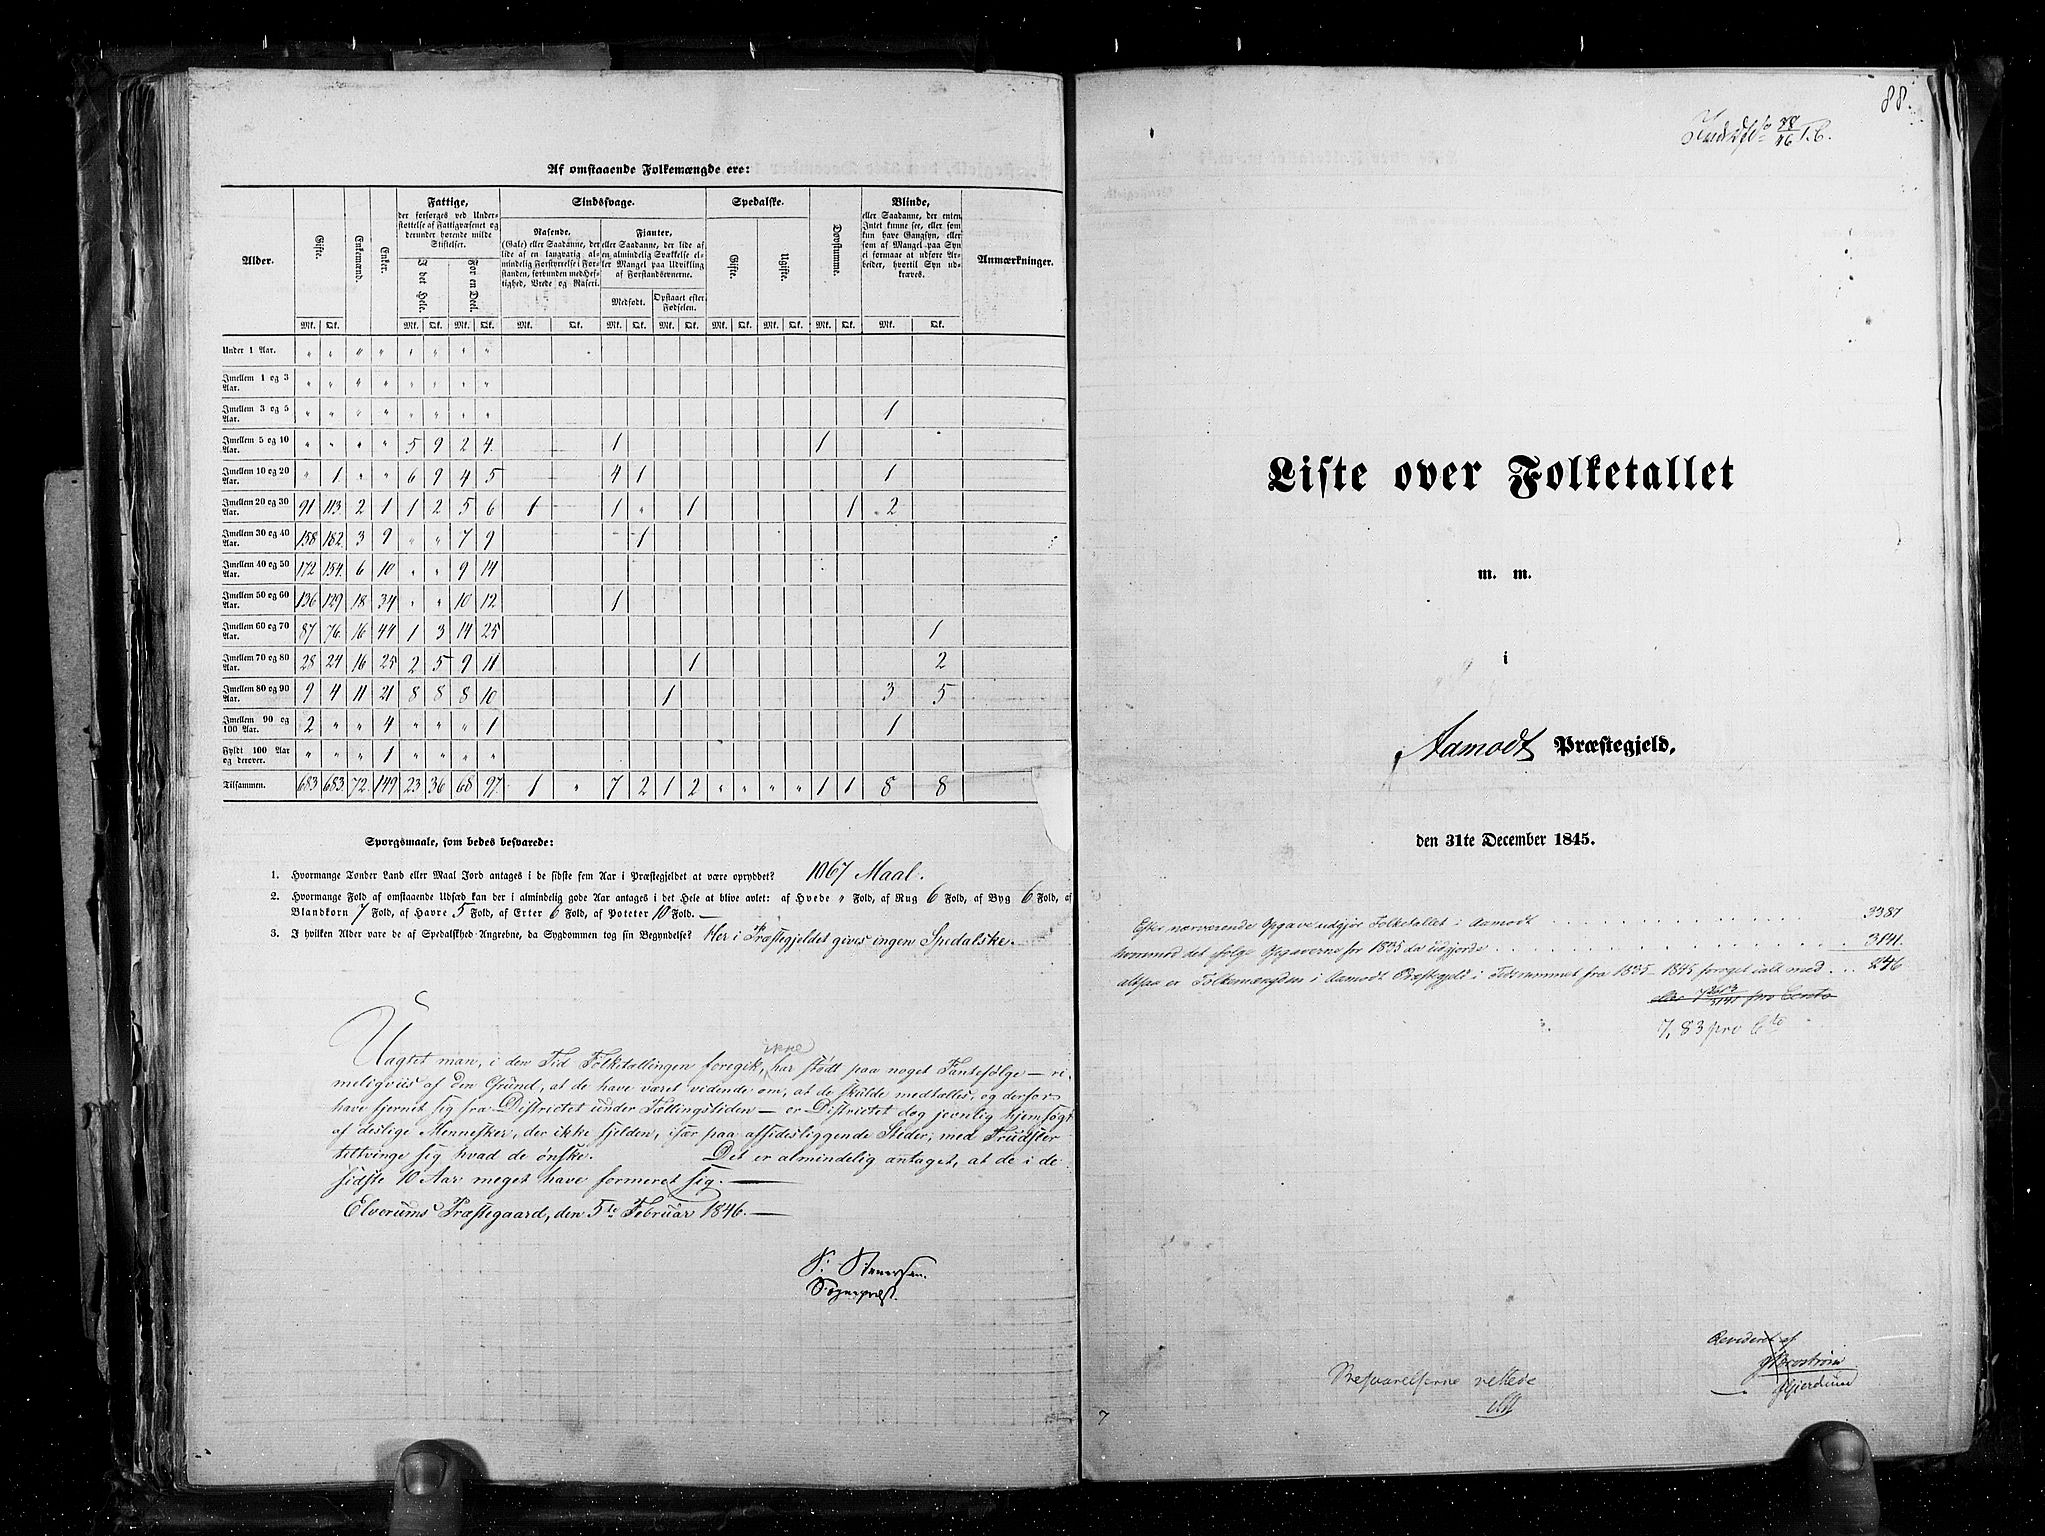 Af omstaaende Folkemængde ere:
Alder. | Gifte. | Enkemænd. | Enker. | Fattige, der forsørges ved Understøttelse af Fattigvæsenet og derunder hørende milde Stiftelser. | Sindssvage. | Spedalske. | Døvstumme. | Blinde, eller Saadanne, der enten Intet kunne see, eller som kun have Gangsyn, eller som af Mangel paa Syn ei formaae at udføre Arbeider, hvortil Syn udkræves. | Anmærkninger.
I det Hele. | For en Deel. | Rasende, (Gale) eller Saadanne, der lide af en langvarig almindelig Forstyrrelse i Forstanden, forbunden med Heftighed, Vrede og Raseri. | Fjanter, eller Saadanne, der lide af en almindelig Svækkelse eller Mangel paa Udvikling af Forstandsevnerne. | Gifte. | Ugifte.
Medfødt. | Opstaaet efter Fødselen.
Mk. | Qk. | Mk. | Qk. | Mk. | Qk. | Mk. | Qk. | Mk. | Qk. | Mk. | Qk. | Mk. | Qk. | Mk. | Qk. | Mk. | Qk. | Mk. | Qk.
Under 1 Aar. | " | " | " | " | " | " | " | "
Imellem 1 og 3 Aar. | " | " | " | " | " | " | " | "
Imellem 3 og 5 Aar. | " | " | " | " | " | " | " | " | 1
Imellem 5 og 10 Aar. | " | " | " | " | 5 | 9 | 2 | 4. | 1 | 1
Imellem 10 og 20 Aar. | " | 1 | " | " | 6 | 9 | 4 | 5 | 4 | 1 | 1
Imellem 20 og 30 Aar. | 91 | 113 | 2 | 1 | 1 | 2 | 5 | 6 | 1 | 1 | " | 1 | 1 | 2
Imellem 30 og 40 Aar. | 158 | 182 | 3 | 9 | " | " | 7 | 9 | 1
Imellem 40 og 50 Aar. | 172 | 154. | 6 | 10 | " | " | 9 | 14
Imellem 50 og 60 Aar. | 136 | 129 | 18 | 34 | " | " | 10 | 12 | 1
Imellem 60 og 70 Aar. | 87 | 76 | 16 | 44 | 1 | 3 | 14 | 25 | 1
Imellem 70 og 80 Aar. | 28 | 24 | 16 | 25 | 2 | 5 | 9 | 11 | 1 | 2
Imellem 80 og 90 Aar. | 9 | 4 | 11 | 21 | 8 | 8 | 8 | 10 | 1 | 3 | 5
Imellem 90 og 100 Aar. | 2 | " | " | 4 | " | " | " | 1 | 1
Fyldt 100 Aar og derover. | " | " | " | 1 | " | " | " | "
Tilsammen. | 683 | 683 | 72 | 149 | 23 | 36 | 68 | 97 | 1 | " | 7 | 2 | 1 | 2 | " | " | " | " | 1 | 1 | 8 | 8
Spørgsmaale, som bedes besvarede:
1. Hvormange Tønder Land eller Maal Jord antages i de sidste fem Aar i Præstegjeldet at være opryddet? 1067 Maal.
2. Hvormange Fold af omstaaende Udsæd kan der i almindelig gode Aar antages i det Hele at blive avlet: af Hvede " Fold, af Rug 6 Fold, af Byg 6 Fold, af
Blandkorn 7 Fold, af Havre 5 Fold, af Erter 6 Fold, af Poteter 10 Fold. —
3. I hvilken Alder vare de af Spedalskhed Angrebne, da Sygdommen tog sin Begyndelse? Her i Præstegjeldet gives ingen Spedalske.
ikke
Uagtet man, i den Tid Folketællingen foregik, har stødt paa noget Fantefølge — ri-
meligviis af den Grund, at de have været vidende om, at de skulde medtælles, og derfor
have fjernet sig fra Districtet under Tællingstiden — er Districtet dog jevnlig hjemsøgt
af deslige Mennesker, der ikke sjelden, især paa afsidesliggende Steder, med Trudsler
tiltvinge sig hvad de ønske. Det er almindelig antaget, at de i de
sidste 10 Aar meget have formeret sig. —
Elverums Præstegaard, den 5te Februar 1846. —
Sognepræst.
88.
Liste over Folketallet
m. m.
i
Aamodt Præstegjeld,
den 31te December 1845.
Efter nærværende Opgave udgjør Folketallet i Aamodt . . . 3387
hvormod det ifølge Opgaverne for 1835 da udgjorde . . . 3141.
altsaa er Folkemængden i Aamodt Præstegjeld i Tidsrummet fra 1835–1845 forøget ialt med . . 246
7,83 pro Cto
Revideret af
Besvarelserne rettede
7